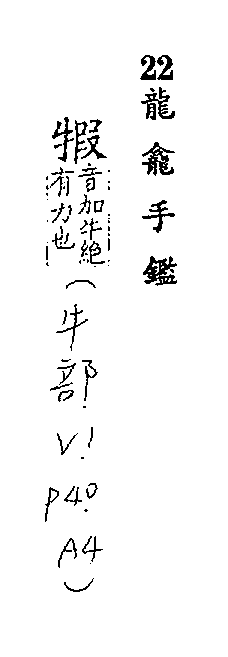 22龍龕手鑑
音加牛絕
有力也
(牛部.V.1P40.A4)